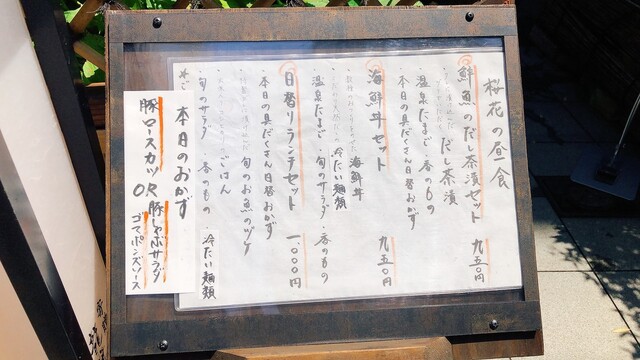 桜花の昼食
鮮魚のだし茶漬セット 九五〇円
だし茶漬
温泉たまご・香のもの
本日の具だくさん日替おかず
海鮮丼セット 九五〇円
海鮮丼
冷たい麺類
温泉たまご・旬のサラダ・香のもの
日替りランチセット 一、〇〇〇円
・本日の具だくさん日替おかず
旬のお魚のヅケ
ごはん
・旬のサラダ・香のもの・冷たい麺類
本日のおかず
豚ロースカツOR豚しゃぶサラダ
ゴマポンズソース